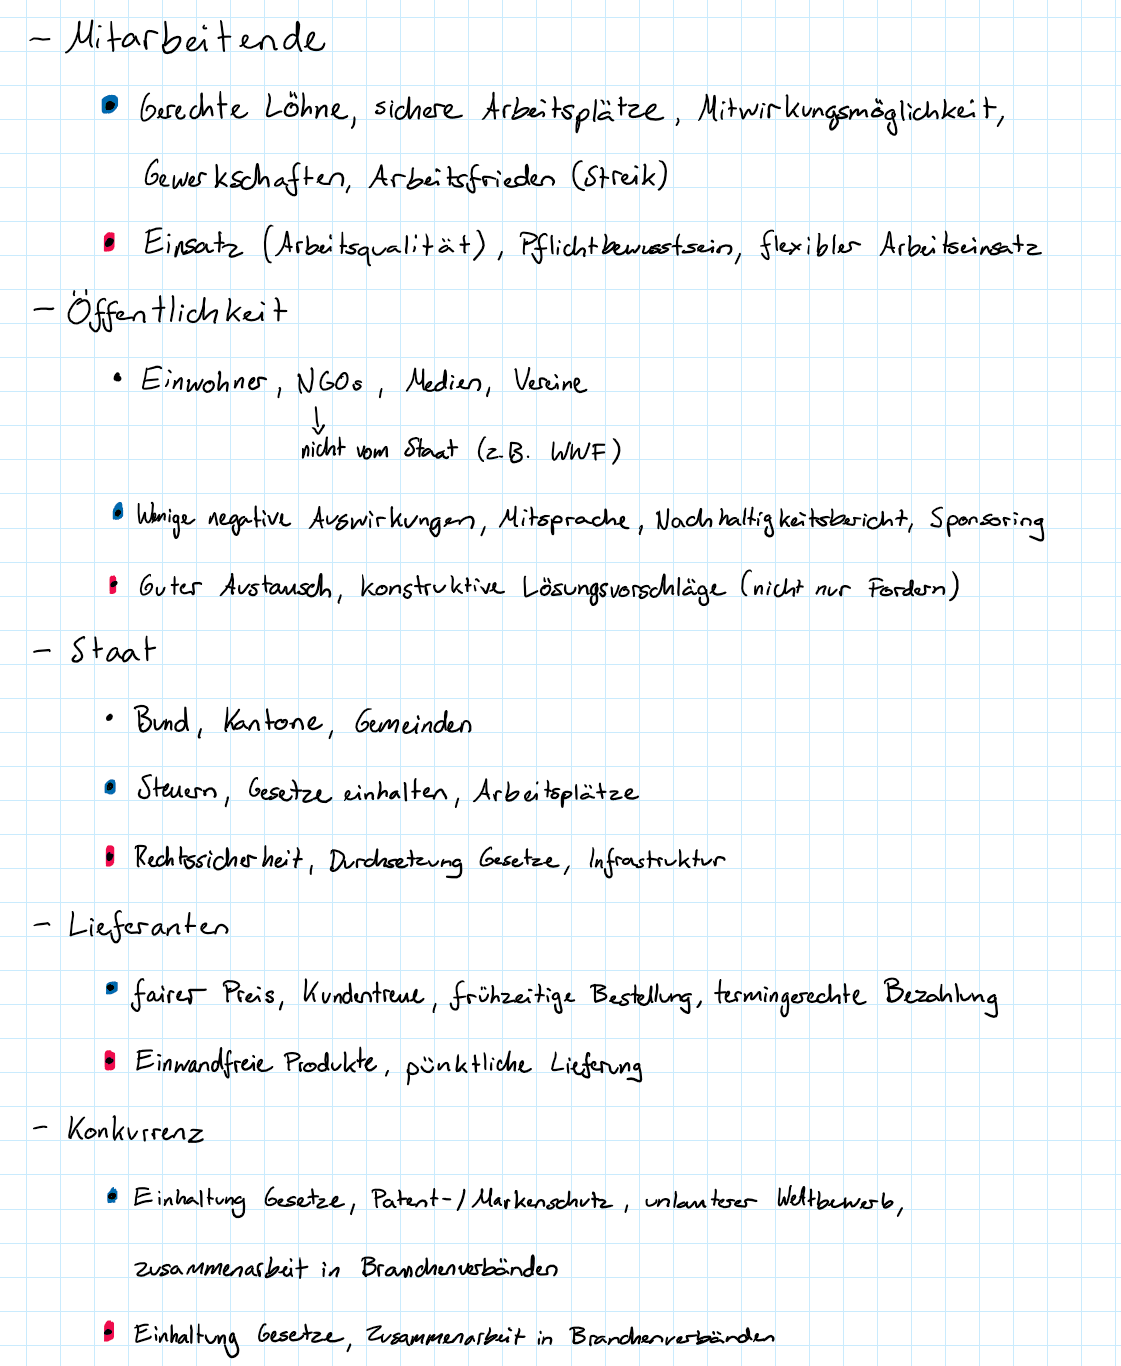 - Mitarbeitende
• Gerechte Löhne, sichere Arbeitsplätze, Mitwirkungsmöglichkeit,
Gewerkschaften, Arbeitsfrieden (Streik)
• Einsatz (Arbeitsqualität), Pflichtbewusstsein, flexibler Arbeitseinsatz
- Öffentlichkeit
• Einwohner, NGOs, Medien, Vereine
↓
nicht vom Staat (z.B. WWF)
• Wenige negative Auswirkungen, Mitsprache, Nachhaltigkeitsbericht, Sponsoring
• Guter Austausch, konstruktive Lösungsvorschläge (nicht nur Fordern)
- Staat
• Bund, Kantone, Gemeinden
• Steuern, Gesetze einhalten, Arbeitsplätze
• Rechtssicherheit, Durchsetzung Gesetze, Infrastruktur
- Lieferanten
• fairer Preis, Kundentreue, frühzeitige Bestellung, termingerechte Bezahlung
• Einwandfreie Produkte, pünktliche Lieferung
- Konkurrenz
• Einhaltung Gesetze, Patent-/Markenschutz, unlauterer Wettbewerb,
zusammenarbeit in Branchenverbänden
• Einhaltung Gesetze, Zusammenarbeit in Branchenverbänden